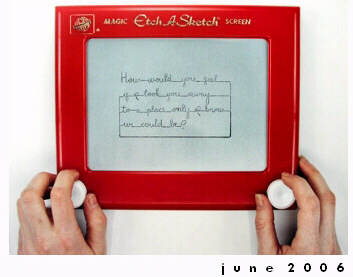 MAGIC Etch A Sketch® SCREEN
How would you feel
if I took you away
to a place only I know
we could be?
june 2006